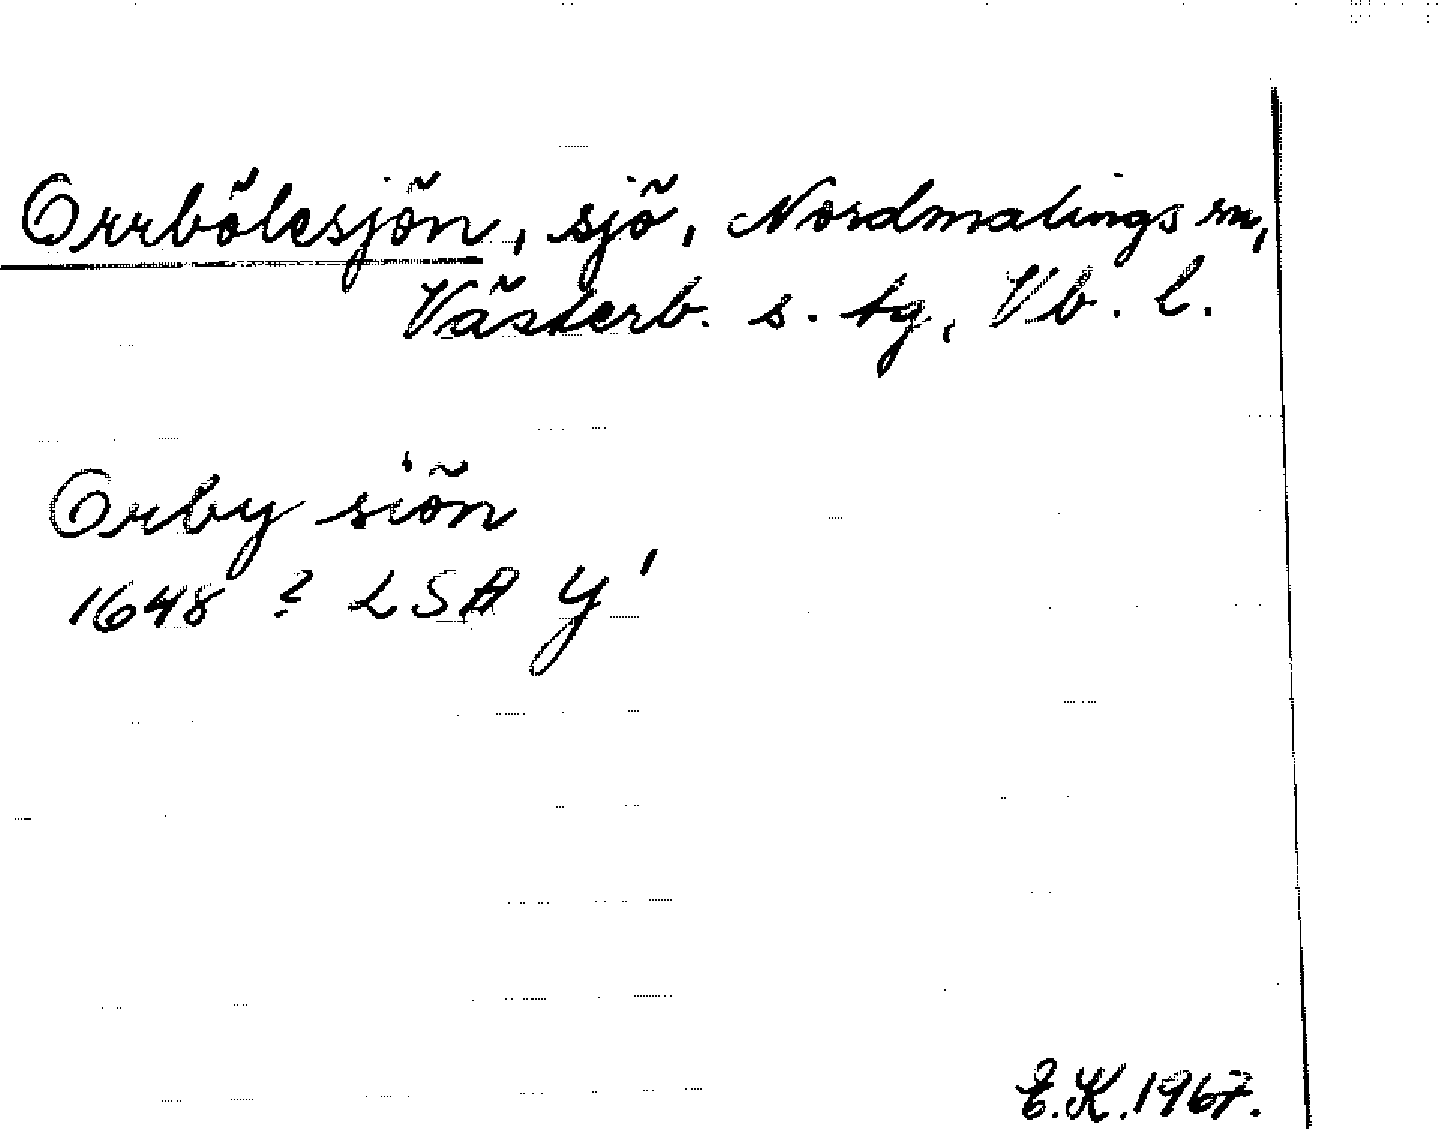 Orrbölesjön, sjö, Nordmalings sn,
Västerb. s. tg, Vb. l.
Orby siön
1648 ? LSA Y'
E.K. 1967.